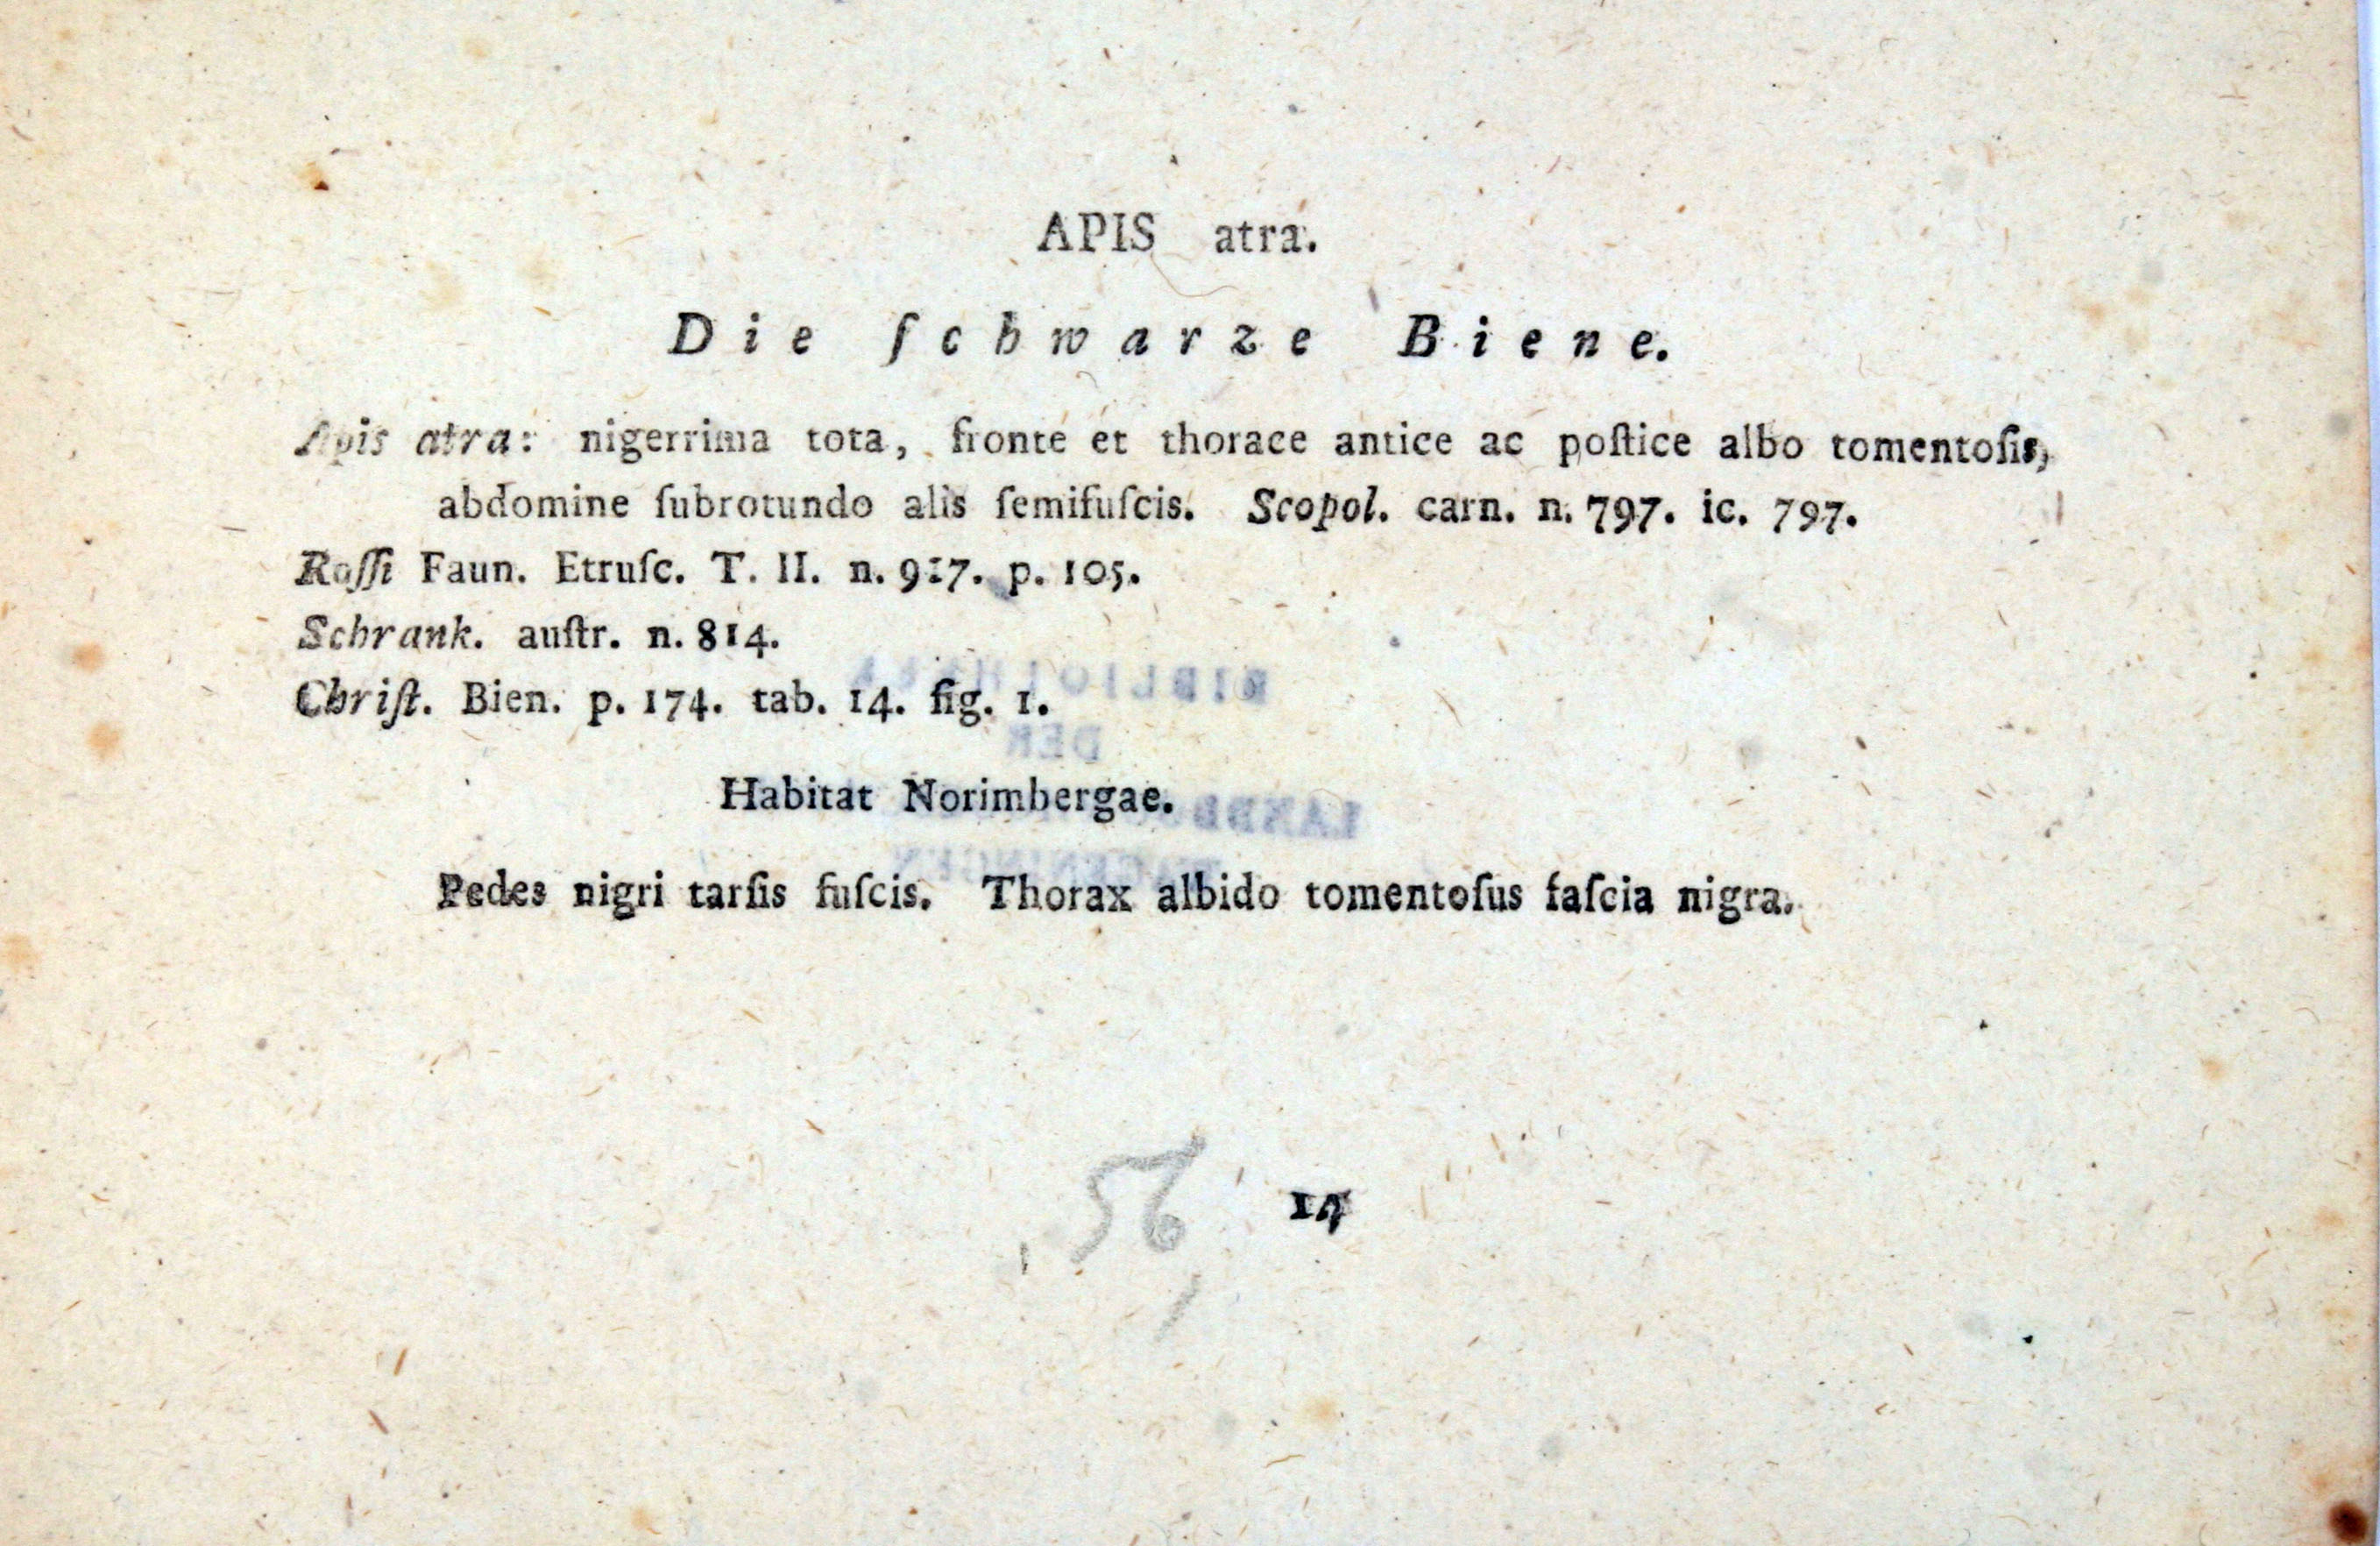 APIS atra.
Die ſchwarze Biene.
Apis atra: nigerrima tota, fronte et thorace antice ac poſtice albo tomentoſis,
abdomine ſubrotundo alis ſemifuſcis. Scopol. carn. n. 797. ic. 797.
Roſſi Faun. Etruſc. T. II. n. p. 105.
Schrank. auſtr. n. 814.
Chriſt. Bien. p. 174. tab. 14. fig. 1.
BIBLIOTHEEK
DER
Habitat Norimbergae.
Pedes nigri tarſis fuſcis. Thorax albido tomentoſus faſcia nigra.
56 14